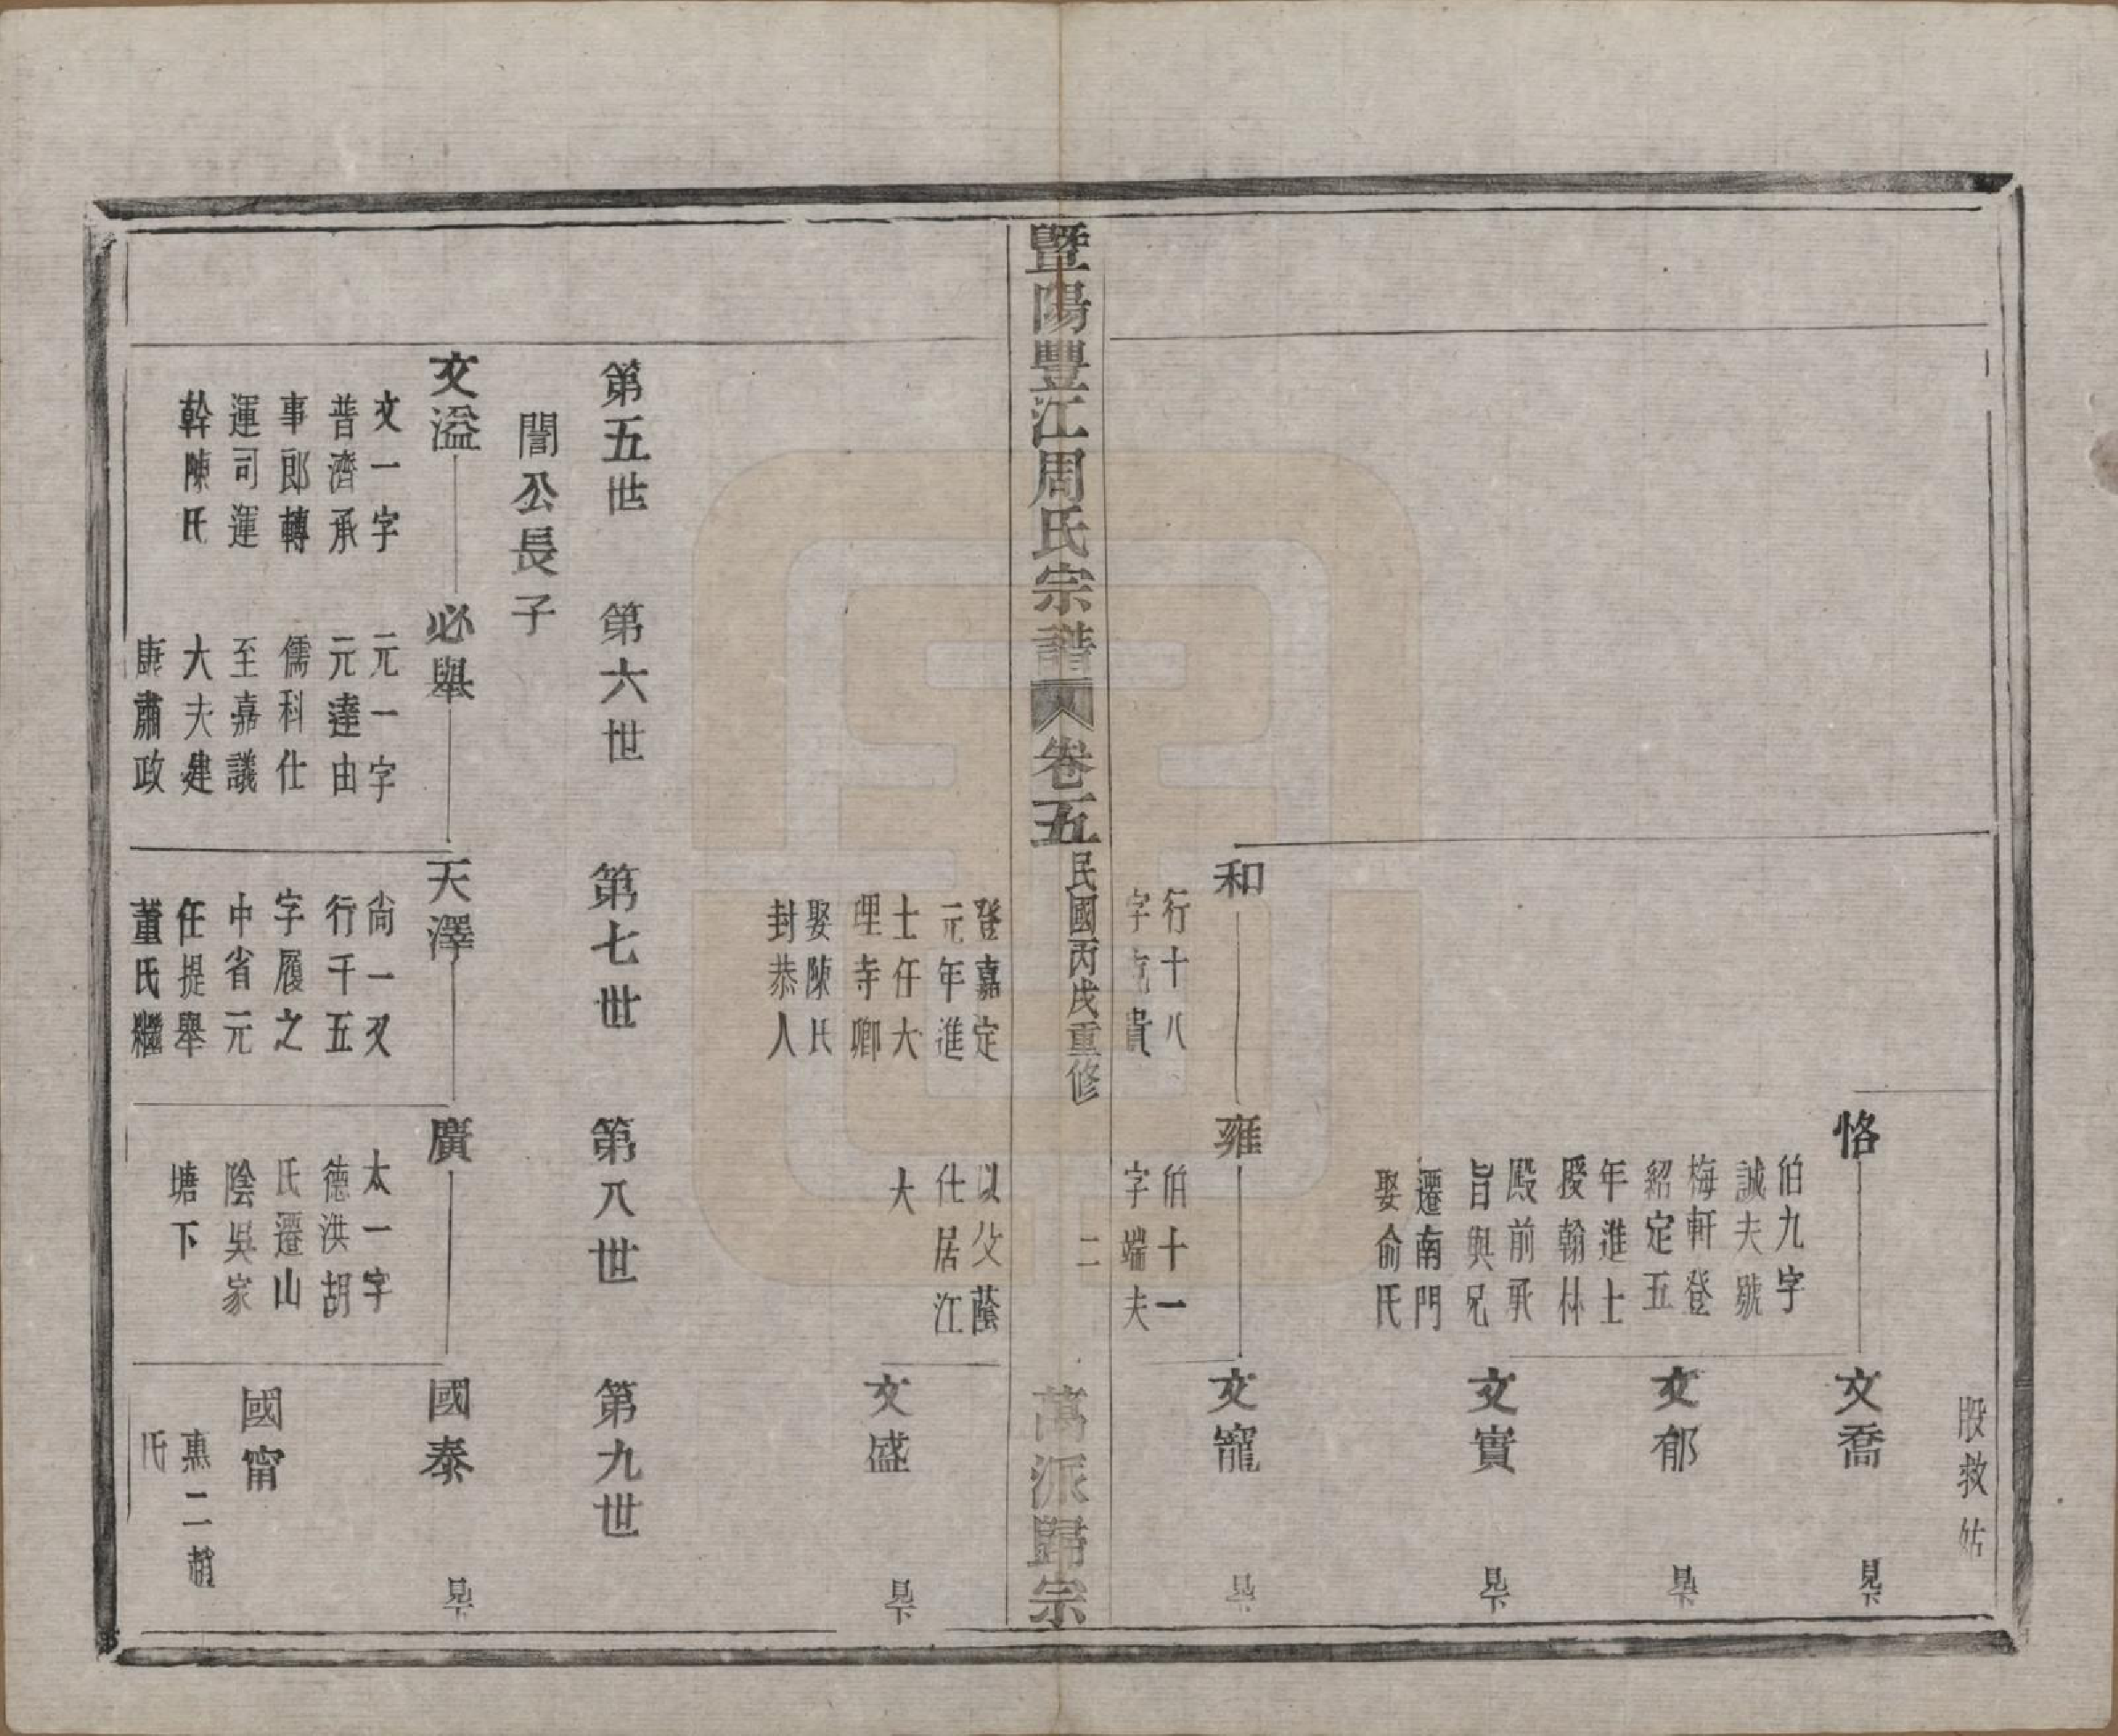 股救姑
恪
伯九字
誠夫號
梅軒登
紹定五
年進士
授翰林
殿前承
旨與兄
遷南門
娶俞氏
文喬
見下
文郁
見下
文實
見下
和
行十八
字克貴
雍
伯十一
字端夫
文寵
見下
暨陽豐江周氏宗譜 卷五
民國丙戌重修
二
萬派歸宗
登嘉定
元年進
士任大
理寺卿
娶陳氏
封恭人
以父蔭
仕居江
大
文盛
見下
第五世 第六世 第七世 第八世 第九世
誾公長子
文溢
文一字
普濟承
事郎轉
運司運
幹陳氏
必舉
元一字
元達由
儒科仕
至嘉議
大夫建
康肅政
天澤
尙一又
行千五
字履之
中省元
任提舉
董氏繼
廣
太一字
德洪胡
氏遷山
陰吳家
塘下
國泰
見下
國甯
惠二趙
氏